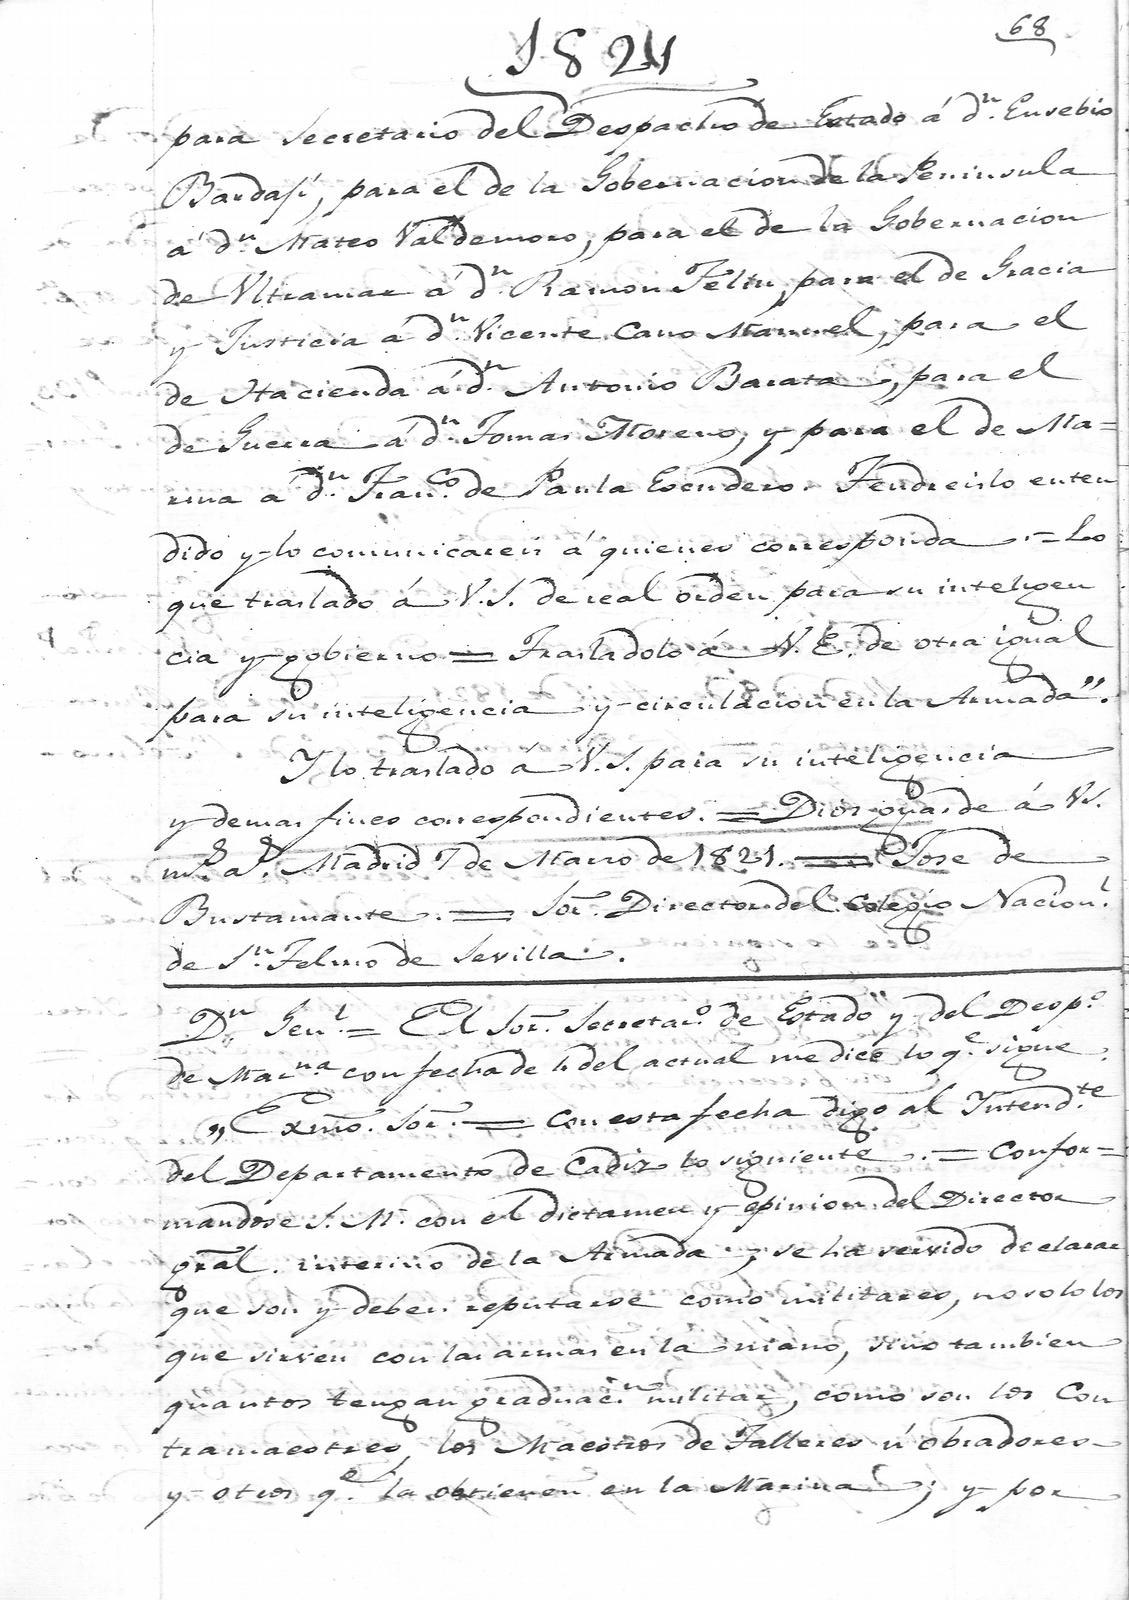 68
1821
para Secretario del Despacho de Estado á dn. Eusebio
Bardaji, para el de la Gobernacion de la Peninsula
á dn. Mateo Valdemoro, para el de la Gobernacion
de Ultramar á dn. Ramon Feliu, para el de Gracia
y Justicia á dn. Vicente Cano Manuel, para el
de Hacienda á dn. Antonio Barata, para el
de Guerra á dn. Tomas Moreno, y para el de Ma=
rina á dn. Franco. de Paula Escudero. Tendreislo enten
dido y lo comunicareis á quienes corresponda .= Lo
que traslado á V.S. de real orden para su inteligen
cia y gobierno = Trasladolo á V.E. de otra igual
para su inteligencia y circulacion en la Armada".
Y lo traslado á V.S. para su inteligencia
y demas fines correspondientes. = Dios guarde á V.S.
ms. as. Madrid 7 de Marzo de 1821. = Jose de
Bustamante . = Sor. Director del Colegio Nacionl.
de Sn. Telmo de Sevilla .
Dn. Genl. = El Sor. Secretaro. de Estado y del Despo.
de Marna con fecha de 4 del actual me dice lo qe. sigue.
„ Exmo. Sor. = Con esta fecha digo al Intendte
del Departamento de Cadiz lo siguiente .= Confor=
mandose S. M. con el dictamen y opinion del Director
gral. interino de la Armada, se ha servido declarar
que son y deben reputarse como militares, no solo los
que sirven con las armas en la mano, sino tambien
quantos tengan graduacn. militar, como son los Con
tramaestres, los Maestros de Talleres ú obradores
y otros qe. la obtienen en la Marina ; y por